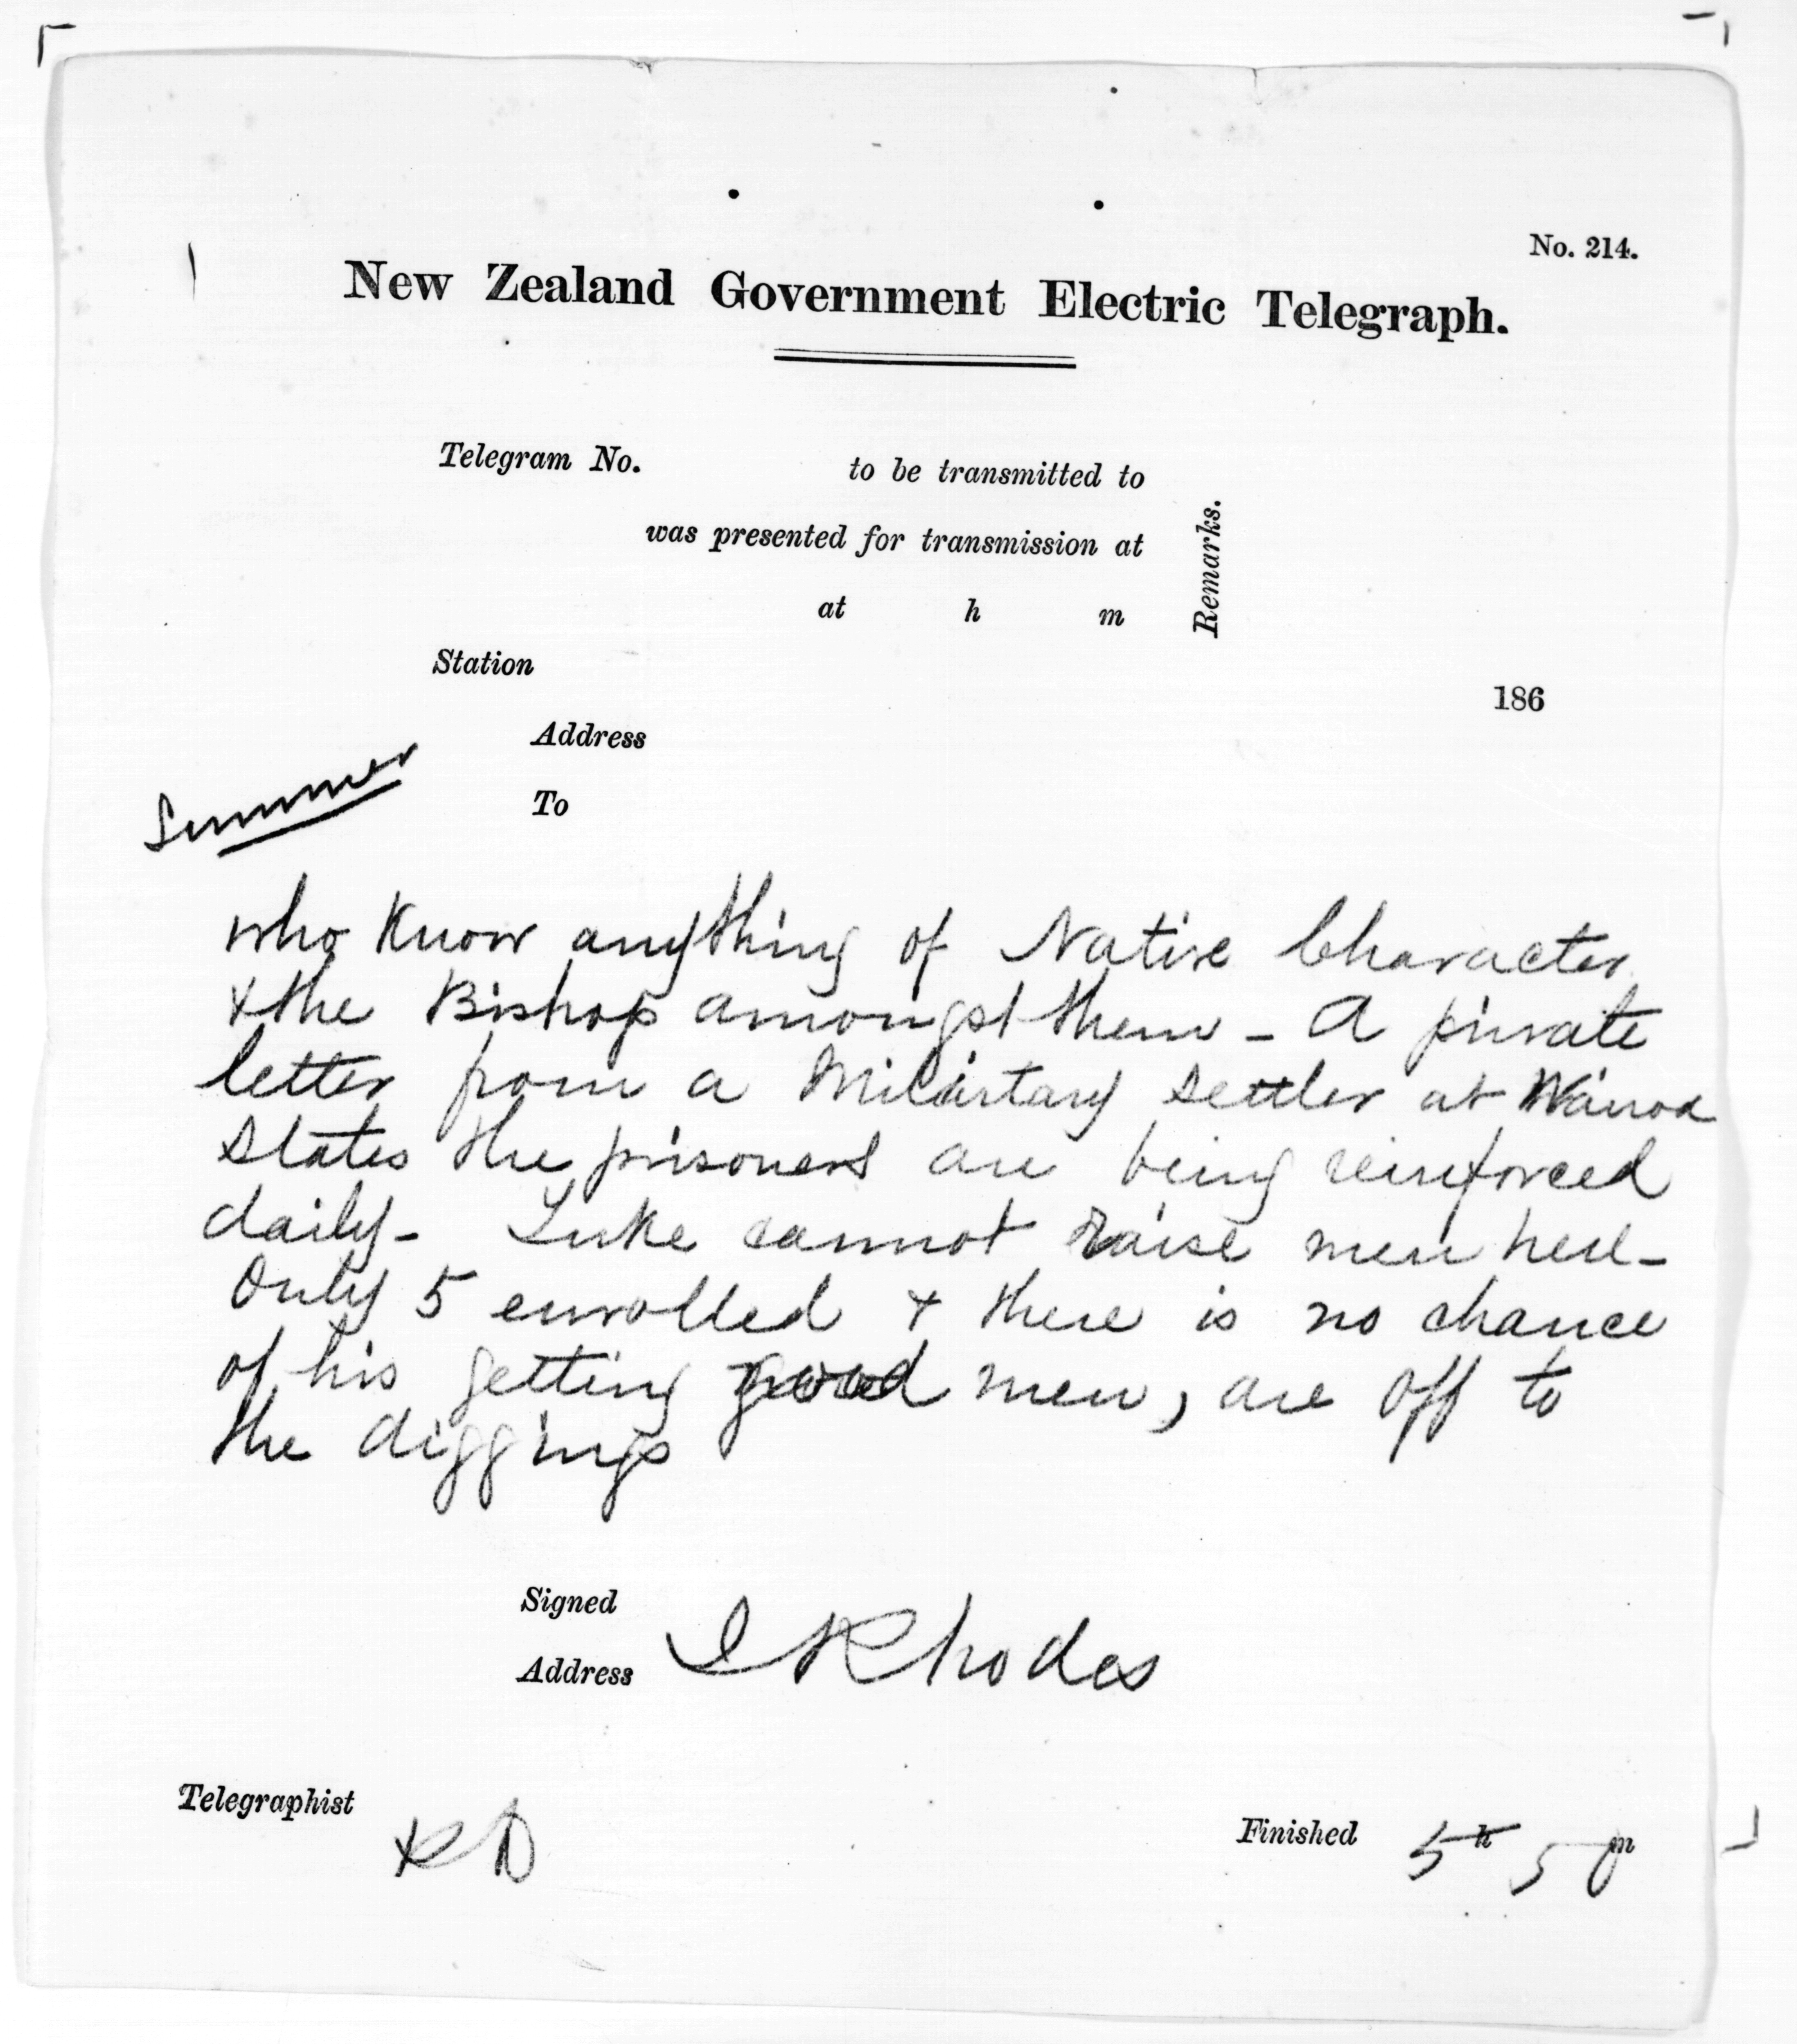 No. 214.
New Zealand Government Electric Telegraph.
Telegram No. to be transmitted to
was presented for transmission at
at h m
Remarks.
Station
186
Address
To
who know anything of Native Character
& the Bishop amongst them - A private
letter from a Military settler at Wairoa
states the prisoners are being reinforced
daily - Luke cannot raise men here -
Only 5 enrolled & there is no chance
of his getting good men, are off to
the diggings
Signed
Address
J Rhodes
Telegraphist
RD
Finished 5 h 5 m